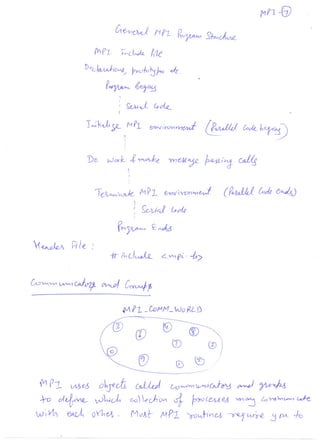 MPI-7
General MPI Program Structure
MPI include file
Declarations, prototypes etc.
Program Begins
Serial code
Initialize MPI environment (Parallel code begins)
Do work & make message passing calls
Terminate MPI environment (Parallel Code Ends)
Serial Code
Program Ends
Header File :
# include <mpi.h>
Communicators and Groups
MPI_COMM_WORLD
2 6 4 8
7
0 9 1 5
MPI uses objects called communicators and groups
to define which collection of processes may communicate
with each other. Most MPI routines require you to